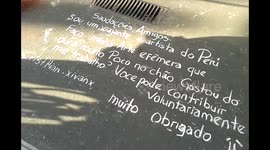 Saudações Amigos
Sou um viajante artista do Perú
Faço arte efímera que
Poco no chão. Gostou do
me trabalho? Voce pode contribuir
Voluntariamente
christian-xivanx
muito Obrigado